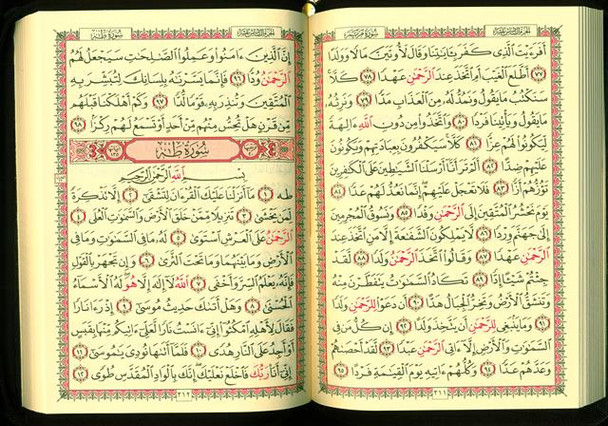 الجزء السادس عشر
سورة مريم
أَفَرَءَيْتَ ٱلَّذِى كَفَرَ بِـَٔايَـٰتِنَا وَقَالَ لَأُوتَيَنَّ مَالًا وَوَلَدًا
٧٧ أَطَّلَعَ ٱلْغَيْبَ أَمِ ٱتَّخَذَ عِندَ ٱلرَّحْمَـٰنِ عَهْدًا ٧٨ كَلَّا
سَنَكْتُبُ مَا يَقُولُ وَنَمُدُّ لَهُۥ مِنَ ٱلْعَذَابِ مَدًّا ٧٩ وَنَرِثُهُۥ
مَا يَقُولُ وَيَأْتِينَا فَرْدًا ٨٠ وَٱتَّخَذُوا۟ مِن دُونِ ٱللَّهِ ءَالِهَةً
لِّيَكُونُوا۟ لَهُمْ عِزًّا ٨١ كَلَّا سَيَكْفُرُونَ بِعِبَادَتِهِمْ وَيَكُونُونَ
عَلَيْهِمْ ضِدًّا ٨٢ أَلَمْ تَرَ أَنَّآ أَرْسَلْنَا ٱلشَّيَـٰطِينَ عَلَى ٱلْكَـٰفِرِينَ
تَؤُزُّهُمْ أَزًّا ٨٣ فَلَا تَعْجَلْ عَلَيْهِمْ إِنَّمَا نَعُدُّ لَهُمْ عَدًّا ٨٤
يَوْمَ نَحْشُرُ ٱلْمُتَّقِينَ إِلَى ٱلرَّحْمَـٰنِ وَفْدًا ٨٥ وَنَسُوقُ ٱلْمُجْرِمِينَ
إِلَىٰ جَهَنَّمَ وِرْدًا ٨٦ لَّا يَمْلِكُونَ ٱلشَّفَـٰعَةَ إِلَّا مَنِ ٱتَّخَذَ عِندَ
ٱلرَّحْمَـٰنِ عَهْدًا ٨٧ وَقَالُوا۟ ٱتَّخَذَ ٱلرَّحْمَـٰنُ وَلَدًا ٨٨ لَّقَدْ
جِئْتُمْ شَيْـًٔا إِدًّا ٨٩ تَكَادُ ٱلسَّمَـٰوَٰتُ يَتَفَطَّرْنَ مِنْهُ
وَتَنشَقُّ ٱلْأَرْضُ وَتَخِرُّ ٱلْجِبَالُ هَدًّا ٩٠ أَن دَعَوْا۟ لِلرَّحْمَـٰنِ وَلَدًا
٩١ وَمَا يَنۢبَغِى لِلرَّحْمَـٰنِ أَن يَتَّخِذَ وَلَدًا ٩٢ إِن كُلُّ مَن فِى
ٱلسَّمَـٰوَٰتِ وَٱلْأَرْضِ إِلَّآ ءَاتِى ٱلرَّحْمَـٰنِ عَبْدًا ٩٣ لَّقَدْ أَحْصَىٰهُمْ
وَعَدَّهُمْ عَدًّا ٩٤ وَكُلُّهُمْ ءَاتِيهِ يَوْمَ ٱلْقِيَـٰمَةِ فَرْدًا ٩٥
٢١١
الجزء السادس عشر
سورة طه
إِنَّ ٱلَّذِينَ ءَامَنُوا۟ وَعَمِلُوا۟ ٱلصَّـٰلِحَـٰتِ سَيَجْعَلُ لَهُمُ
ٱلرَّحْمَـٰنُ وُدًّا ٩٦ فَإِنَّمَا يَسَّرْنَـٰهُ بِلِسَانِكَ لِتُبَشِّرَ بِهِ
ٱلْمُتَّقِينَ وَتُنذِرَ بِهِۦ قَوْمًا لُّدًّا ٩٧ وَكَمْ أَهْلَكْنَا قَبْلَهُم
مِّن قَرْنٍ هَلْ تُحِسُّ مِنْهُم مِّنْ أَحَدٍ أَوْ تَسْمَعُ لَهُمْ رِكْزًۢا ٩٨
سورة طه
بِسْمِ ٱللَّهِ ٱلرَّحْمَـٰنِ ٱلرَّحِيمِ
طه ١ مَآ أَنزَلْنَا عَلَيْكَ ٱلْقُرْءَانَ لِتَشْقَىٰٓ ٢ إِلَّا تَذْكِرَةً
لِّمَن يَخْشَىٰ ٣ تَنزِيلًا مِّمَّنْ خَلَقَ ٱلْأَرْضَ وَٱلسَّمَـٰوَٰتِ ٱلْعُلَى ٤
ٱلرَّحْمَـٰنُ عَلَى ٱلْعَرْشِ ٱسْتَوَىٰ ٥ لَهُۥ مَا فِى ٱلسَّمَـٰوَٰتِ وَمَا فِى
ٱلْأَرْضِ وَمَا بَيْنَهُمَا وَمَا تَحْتَ ٱلثَّرَىٰ ٦ وَإِن تَجْهَرْ بِٱلْقَوْلِ
فَإِنَّهُۥ يَعْلَمُ ٱلسِّرَّ وَأَخْفَى ٧ ٱللَّهُ لَآ إِلَـٰهَ إِلَّا هُوَ لَهُ ٱلْأَسْمَآءُ
ٱلْحُسْنَىٰ ٨ وَهَلْ أَتَىٰكَ حَدِيثُ مُوسَىٰٓ ٩ إِذْ رَءَا نَارًا
فَقَالَ لِأَهْلِهِ ٱمْكُثُوٓا۟ إِنِّىٓ ءَانَسْتُ نَارًا لَّعَلِّىٓ ءَاتِيكُم مِّنْهَا بِقَبَسٍ
أَوْ أَجِدُ عَلَى ٱلنَّارِ هُدًى ١٠ فَلَمَّآ أَتَىٰهَا نُودِىَ يَـٰمُوسَىٰٓ ١١
إِنِّىٓ أَنَا۠ رَبُّكَ فَٱخْلَعْ نَعْلَيْكَ إِنَّكَ بِٱلْوَادِ ٱلْمُقَدَّسِ طُوًى ١٢
٢١٢